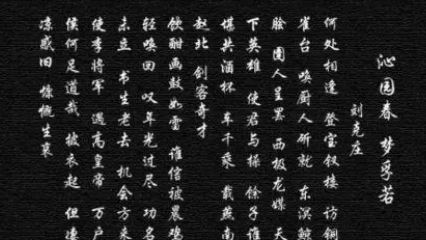 沁园春 梦孚若
刘克庄
何处相逢 登宝钗楼 访铜
雀台 唤厨人斫就 东溟鲸
脍 圉人呈罢 西极龙媒 天
下英雄 使君与操 馀子谁
堪共酒杯 车千乘 载燕南
赵北 剑客奇才
饮酣画鼓如雷 谁信被晨鸡
轻唤回 叹年光过尽 功名
未立 书生老去 机会方来
使李将军 遇高皇帝 万户
侯何足道哉 披衣起 但凄
凉感旧 慷慨生哀